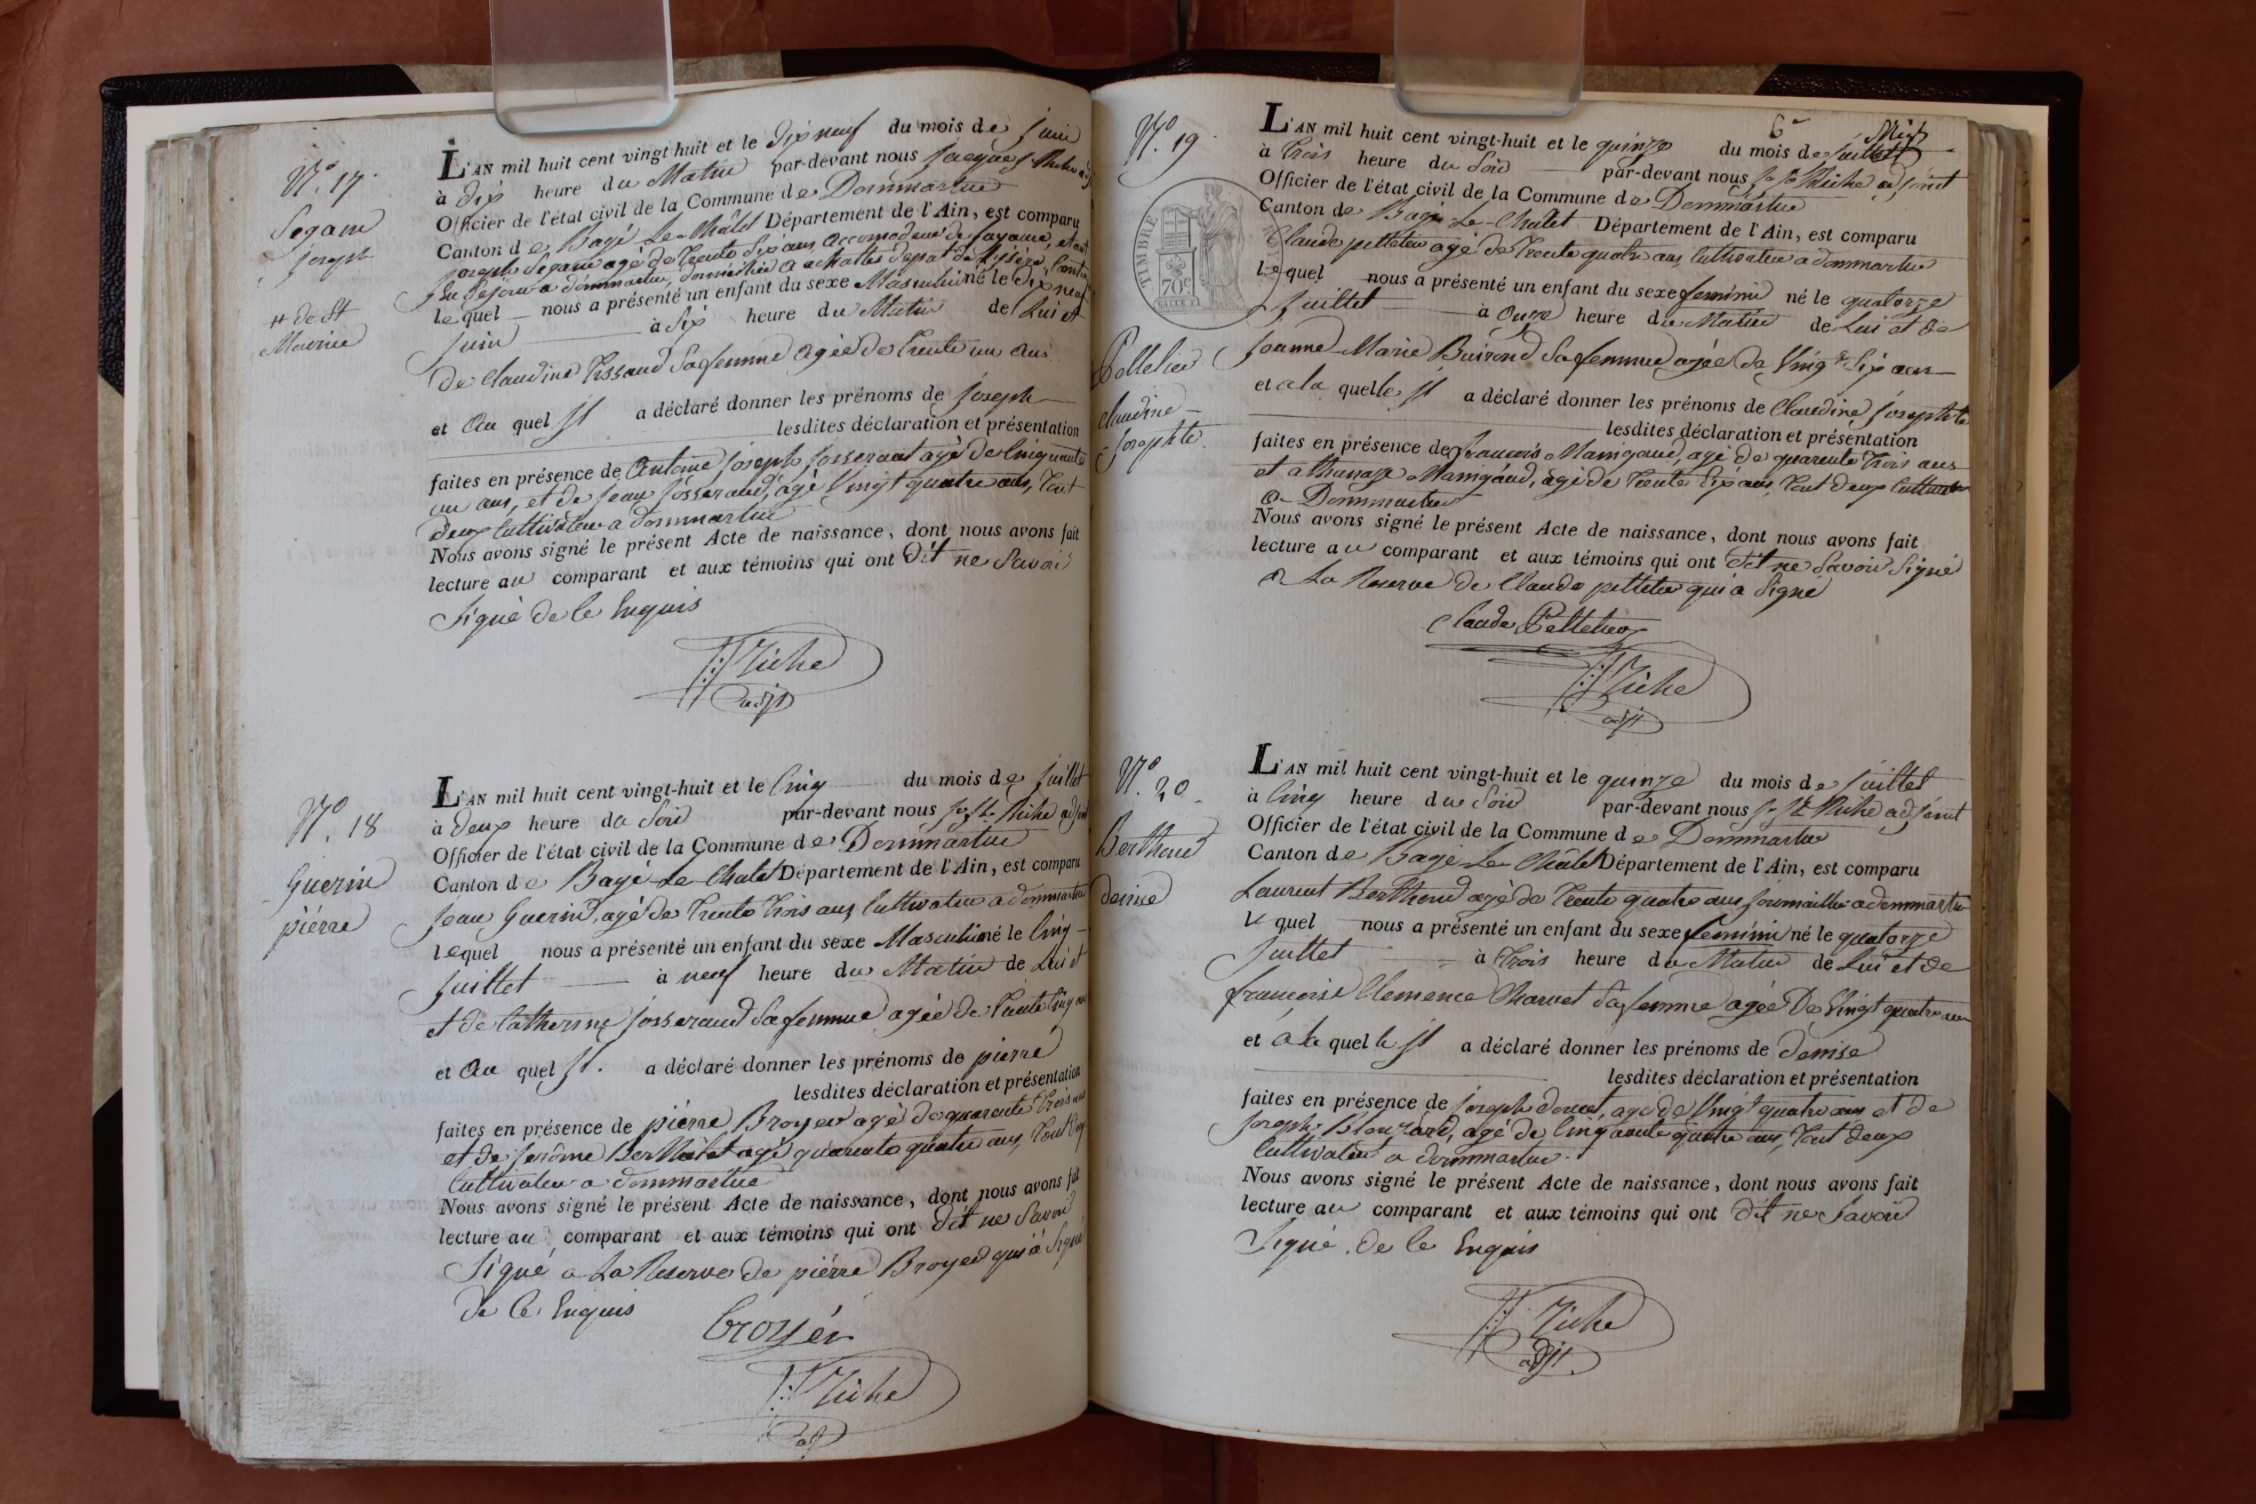 N.º 17.
Segam
joseph
# de St
Maurice
L'AN mil huit cent vingt-huit et le Dix neuf du mois de juin
à Dix heure du Matin par-devant nous jacques Miche adj
Officier de l'état civil de la Commune de Dommartin
Canton de Bagé Le Châtel Département de l'Ain, est comparu
joseph Segam agé de trente Six ans accomodeur de fayance, etant
En Sejour a dommartin, domicilié a
lequel nous a présenté un enfant du sexe Masculin né le Dix neuf
juin à Six heure du Matin de Lui et
de Claudine Tissaud Sa femme agée de trente un ans
et au quel Il a déclaré donner les prénoms de joseph
lesdites déclaration et présentation
faites en présence de Antoine joseph josserant agé de Cinquante
un ans, et de jean josserand, agé Vingt quatre ans, tout
deux Cultivateur a dommartin
Nous avons signé le présent Acte de naissance, dont nous avons fait
lecture au comparant et aux témoins qui ont dit ne Savoir
Signé de ce Enquis
Miche
adjt
N.º 18
Guerin
piérre
L'AN mil huit cent vingt-huit et le Cinq du mois de juillet
à deux heure du Soir par-devant nous js. St. Miche adjoint
Officier de l'état civil de la Commune de Dommartin
Canton de Bagé Le Chatel Département de l'Ain, est comparu
jean Guerin, agé de trente trois ans, Cultivateur a dommartin
lequel nous a présenté un enfant du sexe Masculin né le Cinq
juillet à neuf heure du Matin de Lui et
et de Catherine josserand Sa femme agée de trente Cinq ans
et au quel Il. a déclaré donner les prénoms de pierre
lesdites déclaration et présentation
faites en présence de piérre Broyer agé de quarente trois ans
et de jerôme Berthelet agé quarente quatre ans, tout deux
Cultivateur a dommartin
Nous avons signé le présent Acte de naissance, dont nous avons fait
lecture au comparant et aux témoins qui ont dit ne Savoir
Signé a La Reserve de piérre Broyer qui à Signé
de ce Enquis
broyér
Miche
adjt
N.º 19
6e
TIMBRE
70c
Pelletier
Claudine
josephte
L'AN mil huit cent vingt-huit et le quinze du mois de juillet
à trois heure du Soir par-devant nous js. St. Miche adjoint
Officier de l'état civil de la Commune de Dommartin
Canton de Bagé Le Chatel Département de l'Ain, est comparu
Claude pelletier agé de trente quatre ans, Cultivateur a dommartin
lequel nous a présenté un enfant du sexe feminin né le quatorze
juillet à onze heure du Matin de Lui et de
jeanne Marie Buirond Sa femme agée de Vingt Six ans
et a la quelle Il a déclaré donner les prénoms de Claudine josephte
lesdites déclaration et présentation
faites en présence de françois Maingaud, agé de quarente trois ans
et athanaze Maingaud, agé de trente Six ans, tout deux Cultivateur
a Dommartin
Nous avons signé le présent Acte de naissance, dont nous avons fait
lecture au comparant et aux témoins qui ont dit ne Savoir Signé
a La Reserve de Claude pelletier qui a Signé
Claude Pelletier
Miche
adjt
N.º 20
Berthoud
denise
L'AN mil huit cent vingt-huit et le quinze du mois de juillet
à Cinq heure du Soir par-devant nous js. St. Miche adjoint
Officier de l'état civil de la Commune de Dommartin
Canton de Bagé Le Châtel Département de l'Ain, est comparu
Laurent Berthoud agé de trente quatre ans journaillier a dommartin
lequel nous a présenté un enfant du sexe feminin né le quatorze
juillet à trois heure du Matin de Lui et de
françoise Clemence Charvet Sa femme agée De Vingt quatre ans
et à la quelle Il a déclaré donner les prénoms de denise
lesdites déclaration et présentation
faites en présence de joseph doucet, agé de Vingt quatre ans et de
joseph Blouzard, agé de Cinquante quatre ans, tout deux
Cultivateur a dommartin.
Nous avons signé le présent Acte de naissance, dont nous avons fait
lecture au comparant et aux témoins qui ont dit ne Savoir
Signé. de ce Enquis
Miche
adjt.